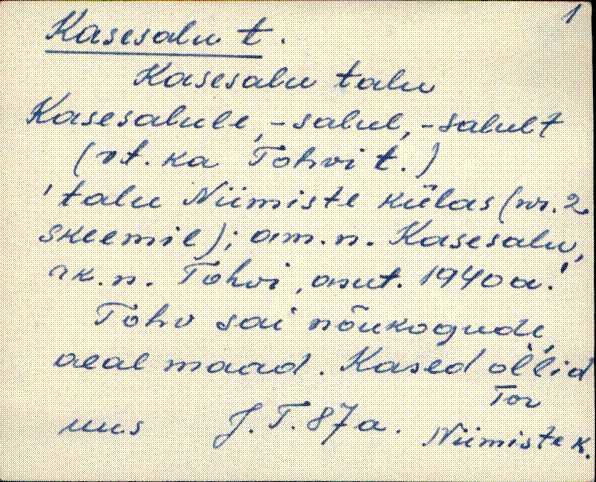 1
Kasesalu t.
Kasesalu talu
Kasesalule, -salul, -salult
(vt. ka Tohvi t.)
'talu Niimiste külas (nr. 2
skeemil); am. n. Kasesalu,
rk. n. Tohvi, asut. 1940 a.'
Tohv sai nõukogude
aeal maad. Kased òllid
Tor
uus J. T. 87 a. Niimiste k.